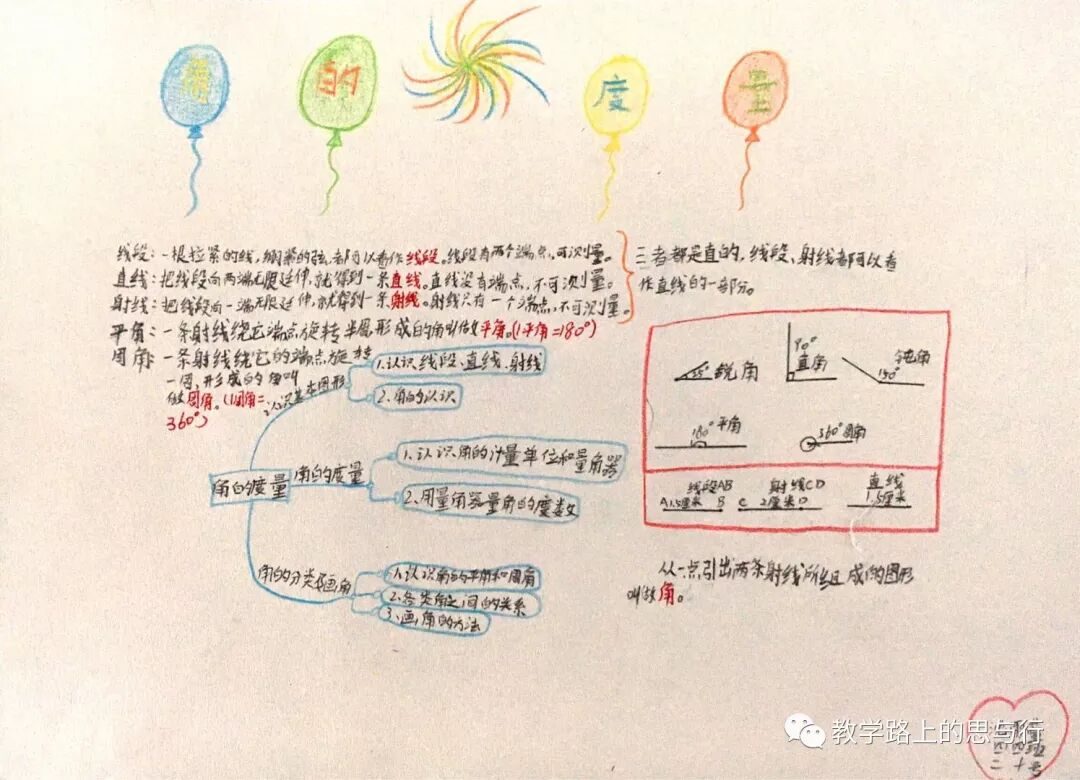 角 的 度 量
线段：一根拉紧的线，绷紧的弦，都可以看作线段。线段有两个端点，可测量。
直线：把线段向两端无限延伸，就得到一条直线。直线没有端点，不可测量。
射线：把线段向一端无限延伸，就得到一条射线。射线只有一个端点，不可测量。
三者都是直的，线段、射线都可以看
作直线的一部分。
平角：一条射线绕它端点旋转半圆形成的角叫做平角。(1平角=180°)
周角：一条射线绕它的端点旋转
一周，形成的角叫
做周角。(1周角=
360°)
认识基本图形
1.认识线段、直线、射线
2.角的认识
角的度量
角的度量
1.认识角的计量单位和量角器
2.用量角器量角的度数
角的分类及画角
1.认识角的平角和周角
2.各类角之间的关系
3.画角的方法
锐角
90°
直角
钝角
150°
180°平角
360°周角
线段AB
A 1.5厘米 B
射线CD
C 2厘米 D
直线
1.5厘米
从一点引出两条射线所组成的图形
叫做角。
二十号
教学路上的思与行